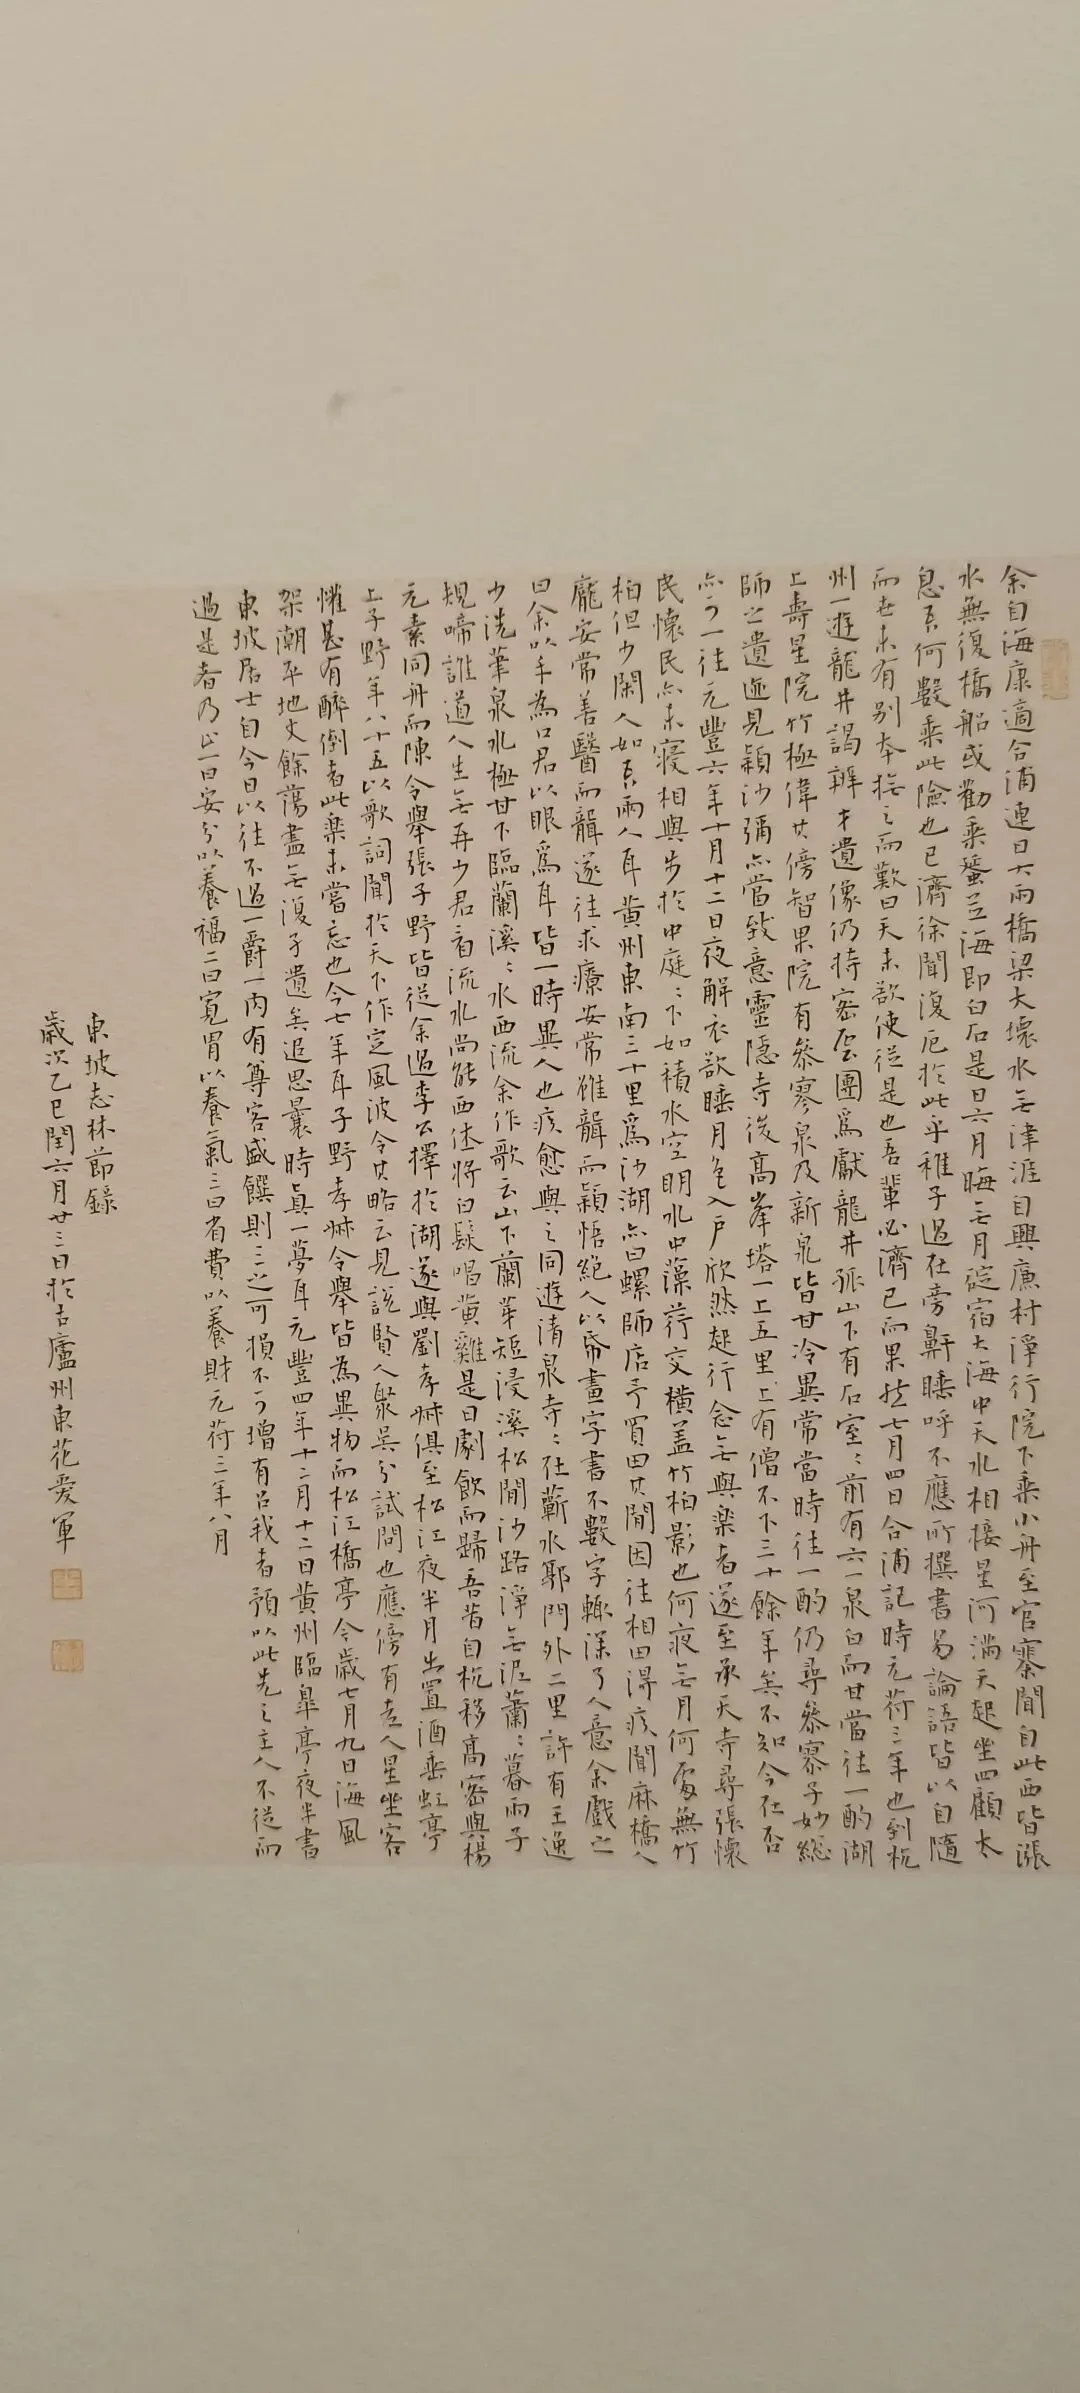 余自海康適合浦連日大雨橋梁大壞水无津涯自興廉村淨行院下乘小舟至官寨聞自此西皆漲
水無復橋船或勸乘蜑並海即白石是日六月晦无月碇宿大海中天水相接星河滿天起坐四顧太
息吾何數乘此險也已濟徐聞復厄於此乎稚子過在旁鼾睡呼不應所撰書易論語皆以自隨
而世未有别本撫之而歎曰天未欲使從是也吾輩必濟已而果然七月四日合浦記時元符三年也到杭
州一遊龍井謁辨才遺像仍持密雲團為獻龍井孤山下有石室〻前有六一泉白而甘當往一酌湖
上壽星院竹極偉其傍智果院有參寥泉及新泉皆甘冷異常當時往一酌仍尋參寥子妙総
師之遺迹見穎沙彌亦當致意靈隱寺後高峯塔一上五里上有僧不下三十餘年矣不知今在否
亦可一往元豐六年十月十二日夜解衣欲睡月色入户欣然起行念无與楽者遂至承天寺尋張懷
民懷民亦未寢相與步於中庭〻下如積水空明水中藻荇交橫盖竹柏影也何夜无月何處無竹
柏但少閑人如吾兩人耳黄州東南三十里爲沙湖亦曰螺師店予買田其間因往相田得疾聞麻橋人
龐安常善醫而聾遂往求療安常雖聾而穎悟絶人以帋畫字書不數字輒深了人意余戲之
曰余以手為口君以眼爲耳皆一時異人也疾愈與之同遊清泉寺〻在蘄水郭門外二里許有王逸
少洗筆泉水極甘下臨蘭溪〻水西流余作歌云山下蘭芽短浸溪松間沙路淨无泥蕭〻暮雨子
規啼誰道人生无再少君看流水尚能西休將白髮唱黄雞是日劇飲而歸吾昔自杭移高密與楊
元素同舟而陳令舉張子野皆從余過李公擇於湖遂與劉孝叔俱至松江夜半月出置酒垂虹亭
上子野年八十五以歌詞聞於天下作定風波令其略云見説賢人聚吳分試問也應傍有老人星坐客
懽甚有醉倒者此楽未嘗忘也今七年耳子野孝叔令舉皆為異物而松江橋亭今歲七月九日海風
架潮平地丈餘蕩盡无復孑遺矣追思曩時真一夢耳元豐四年十二月十二日黄州臨皋亭夜半書
東坡居士自今日以往不過一爵一肉有尊客盛饌則三之可損不可增有召我者預以此先之主人不從而
過是者乃止一曰安分以養福二曰寬胃以養氣三曰省費以養財元符三年八月
東坡志林節録
歲次乙巳閏六月廿三日於古廬州東花爱軍